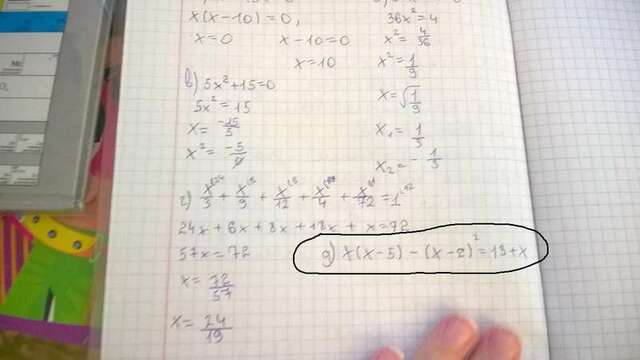 x(x-10)=0,
x=0 x-10=0
x=10
36x²=4
x²=4/36
x²=1/9
x=√1/9
x₁=1/3
x₂=-1/3
в) 5x²+15=0
5x²=15
x=-15/5
г) x/3+x/9+x/12+x/4+x/72=1
24x+6x+8x+18x+x=72
57x=72
x=72/57
x=24/19
д) x(x-5)-(x-2)²=13+x